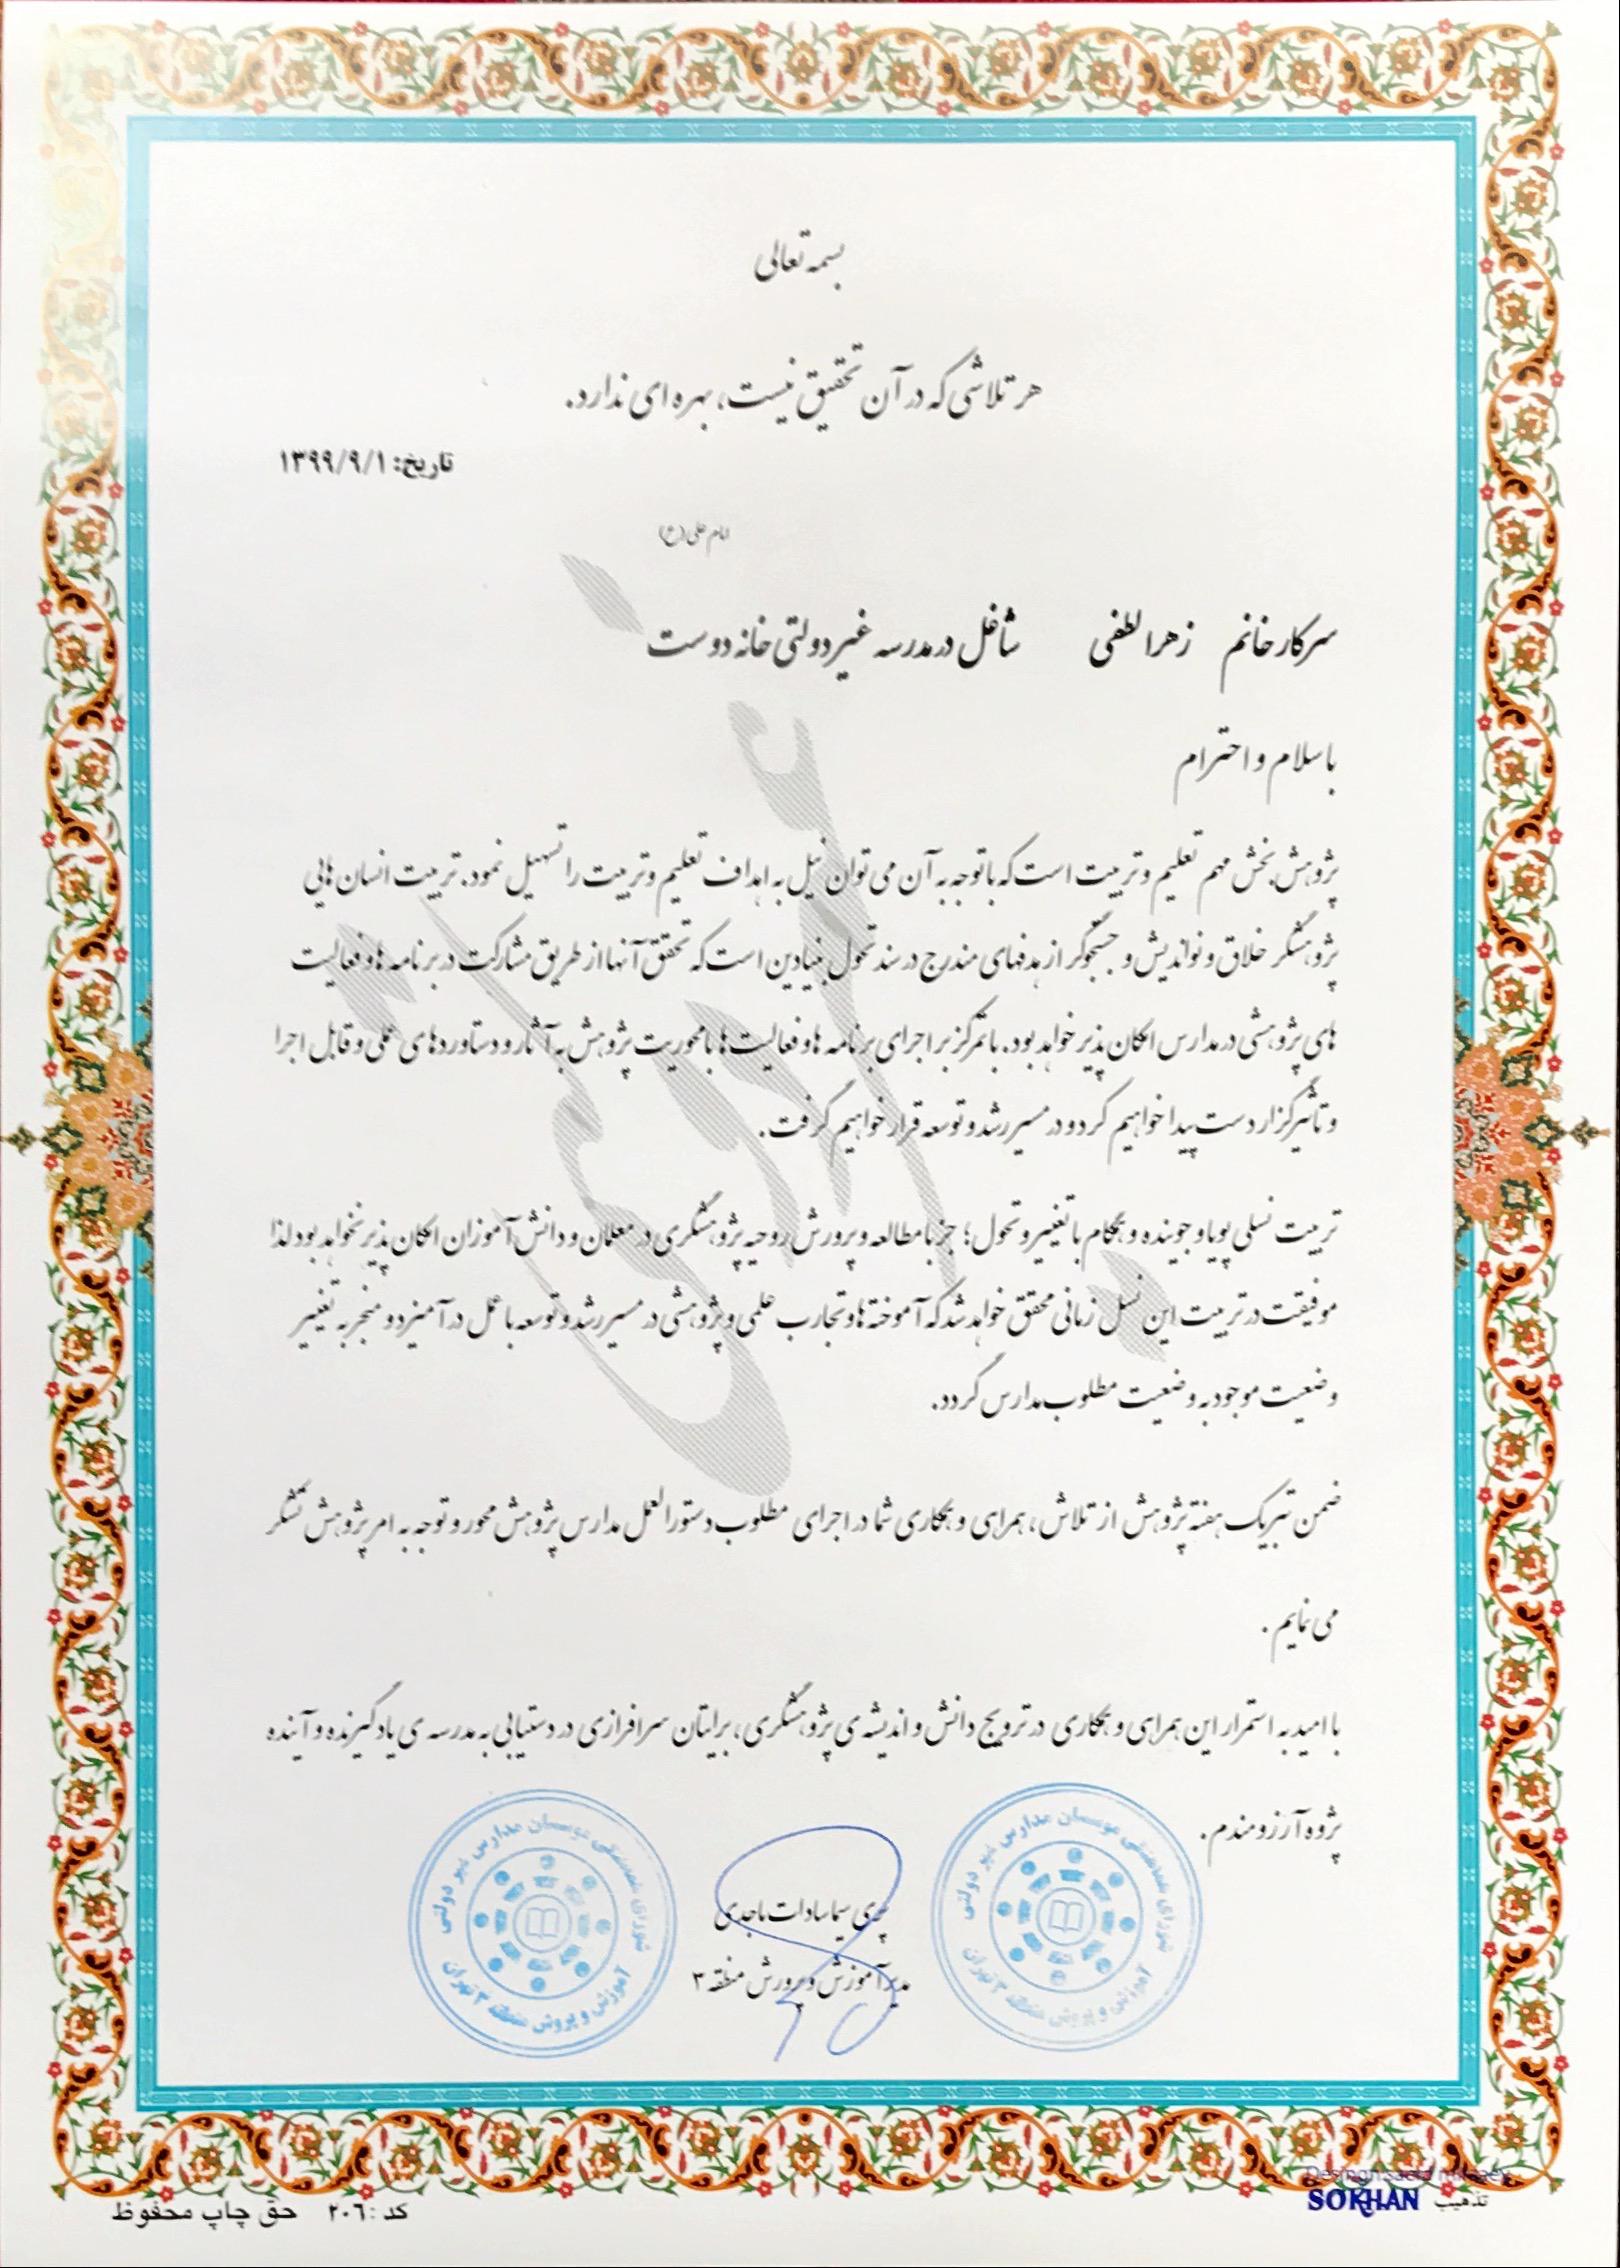 بسمه تعالی
هر تلاشی که در آن تحقیق نیست، بهره ای ندارد.
تاریخ: ۱۳۹۹/۹/۱
امام علی (ع)
سرکار خانم زهرا لطفی شاغل در مدرسه غیر دولتی خانه دوست
با سلام و احترام
پژوهش بخش مهم تعلیم و تربیت است که با توجه به آن می توان نیل به اهداف تعلیم و تربیت را تسهیل نمود. تربیت انسان هایی
پژوهشگر خلاق و نواندیش و جستجوگر از هدفهای مندرج در سند تحول بنیادین است که تحقق آنها از طریق مشارکت در برنامه ها و فعالیت
های پژوهشی در مدارس امکان پذیر خواهد بود. با تمرکز بر اجرای برنامه ها و فعالیت ها با محوریت پژوهش به آثار و دستاوردهای عملی و قابل اجرا
و تاثیرگزار دست پیدا خواهیم کرد و در مسیر رشد و توسعه قرار خواهیم گرفت.
تربیت نسلی پویا و جوینده و همگام با تغییر و تحول؛ جز با مطالعه و پرورش روحیه پژوهشگری در معلمان و دانش آموزان امکان پذیر نخواهد بود لذا
موفیقت در تربیت این نسل زمانی محقق خواهد شد که آموخته ها و تجارب علمی و پژوهشی در مسیر رشد و توسعه با عمل در آمیزد و منجر به تغییر
وضعیت موجود به وضعیت مطلوب مدارس گردد.
ضمن تبریک هفته پژوهش از تلاش، همراهی و همکاری شما در اجرای مطلوب دستورالعمل مدارس پژوهش محور و توجه به امر پژوهش تشکر
می نمایم.
با امید به استمرار این همراهی و همکاری در ترویج دانش و اندیشه ی پژوهشگری، برایتان سرافرازی در دستیابی به مدرسه ی یادگیرنده و آینده
پژوه آرزومندم.
سیما سادات ماجدی
مدیر آموزش و پرورش منطقه ۳
شورای هماهنگی موسسان مدارس غیر دولتی
آموزش و پرورش منطقه ۳ تهران
شورای هماهنگی موسسان مدارس غیر دولتی
آموزش و پرورش منطقه ۳ تهران
تذهیب SOKHAN
کد: ۲۰۶ حق چاپ محفوظ